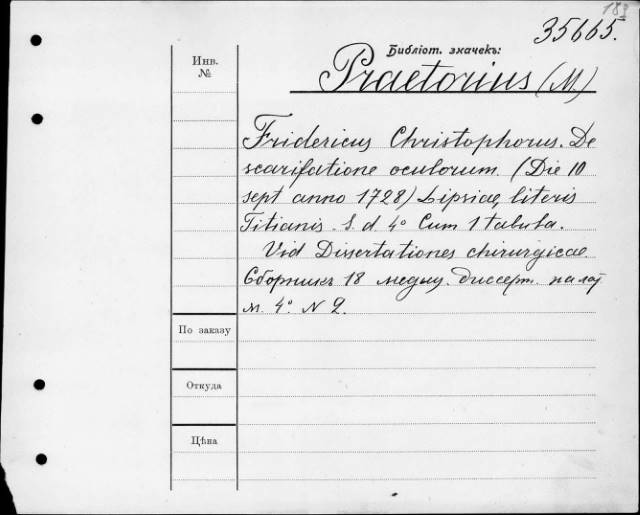 183
35665.
Библіот. значекъ:
Инв.
№
Praetorius (M.)
Fridericus Christophorus. De
scarifatione oculorum. (Die 10
sept anno 1728) Lipsiae, literis
Titianis. S. d. 4° Cum 1 tabula.
Vid Dissertationes chirurgicae
Сборникъ 18 медиц. диссерт. на лат
м. 4°. N 2.
По заказу
Откуда
Цѣна